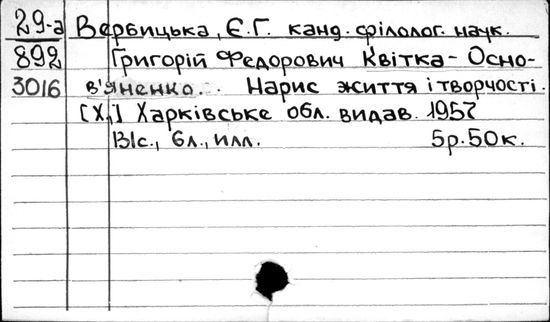 29-а Вербицька, Є.Г. канд. філолог. наук.
892 Григорій Федорович Квітка - Осно-
3016 в'яненко. Нарис життя і творчості.
[Х.] Харківське обл. видав. 1957
131с., 6л., илл. 5р. 50к.